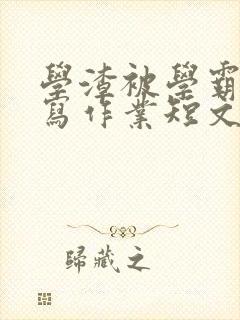 學渣被學霸
寫作業短文
歸藏之